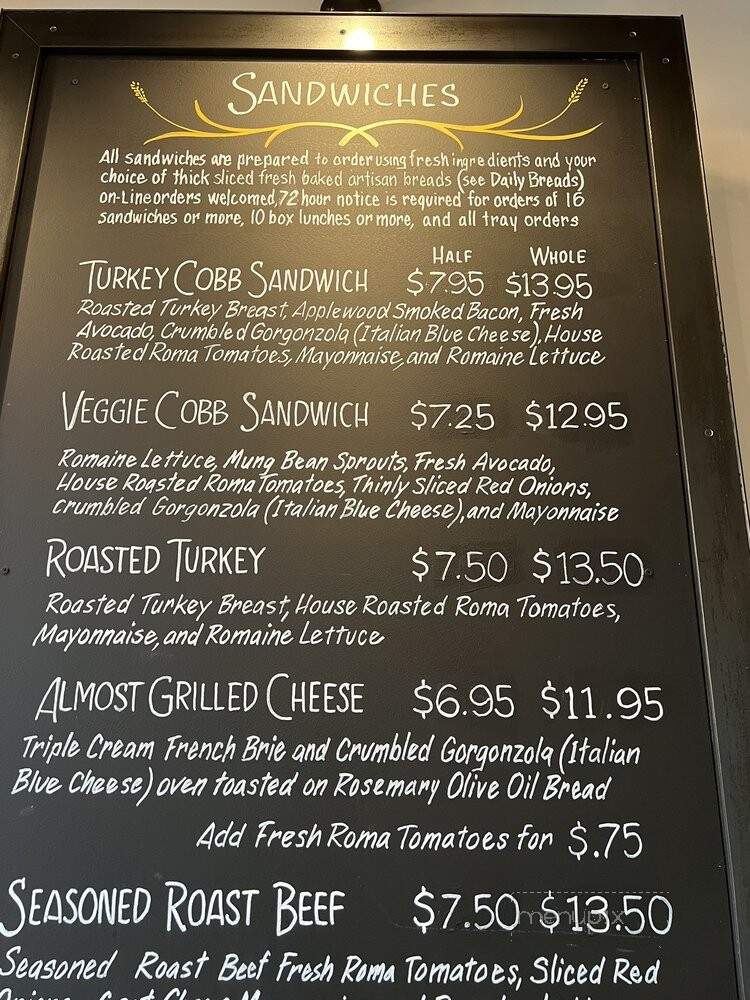 SANDWICHES
All sandwiches are prepared to order using fresh ingredients and your
choice of thick sliced fresh baked artisan breads (see Daily Breads)
on-Line orders welcomed, 72 hour notice is required for orders of 16
sandwiches or more, 10 box lunches or more, and all tray orders
HALF WHOLE
TURKEY COBB SANDWICH $7.95 $13.95
Roasted Turkey Breast, Applewood Smoked Bacon, Fresh
Avocado, Crumbled Gorgonzola (Italian Blue Cheese), House
Roasted Roma Tomatoes, Mayonnaise, and Romaine Lettuce
VEGGIE COBB SANDWICH $7.25 $12.95
Romaine Lettuce, Mung Bean Sprouts, Fresh Avocado,
House Roasted Roma Tomatoes, Thinly Sliced Red Onions,
crumbled Gorgonzola (Italian Blue Cheese), and Mayonnaise
ROASTED TURKEY $7.50 $13.50
Roasted Turkey Breast, House Roasted Roma Tomatoes,
Mayonnaise, and Romaine Lettuce
ALMOST GRILLED CHEESE $6.95 $11.95
Triple Cream French Brie and Crumbled Gorgonzola (Italian
Blue Cheese) oven toasted on Rosemary Olive Oil Bread
Add Fresh Roma Tomatoes for $.75
SEASONED ROAST BEEF $7.50 $13.50
menupix
Seasoned Roast Beef Fresh Roma Tomatoes, Sliced Red